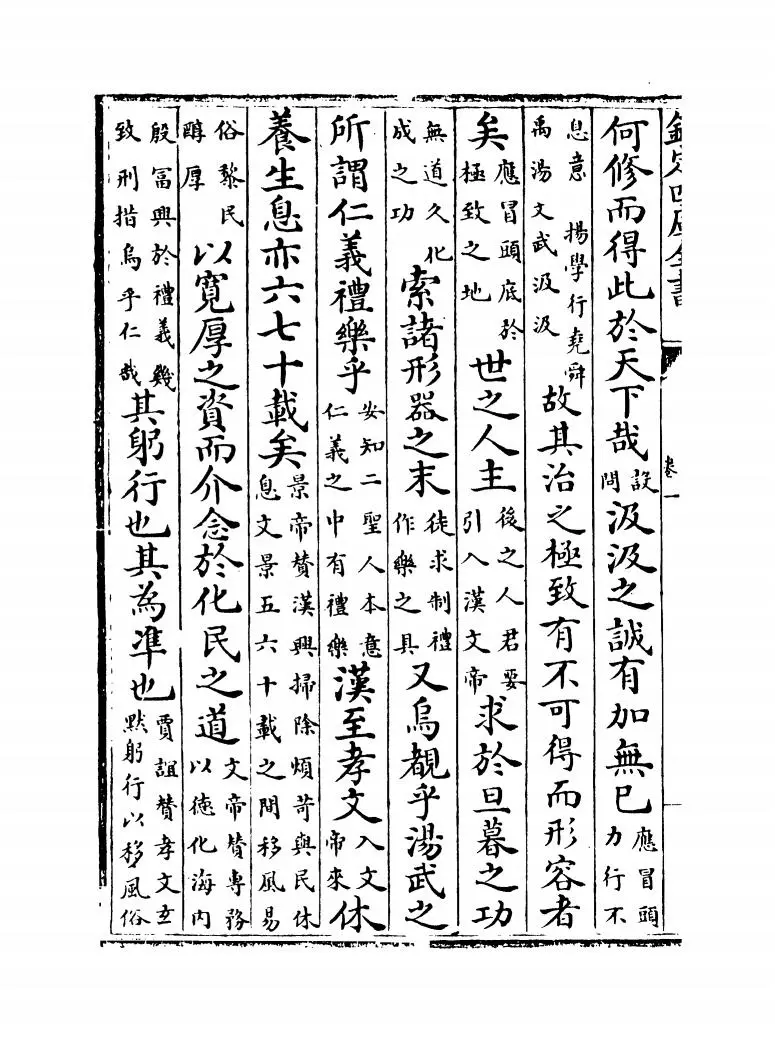 欽定四庫全書 卷一
何修而得此於天下哉設問汲汲之誠有加無已應冒頭力行不
息意 揚學行堯舜禹湯文武汲汲故其治之極致有不可得而形容者
矣應冒頭底於極致之地世之人主後之人君要引入漢文帝求於旦暮之功
無道久化成之功索諸形器之末徒求制禮作樂之具又烏覩乎湯武之
所謂仁義禮樂乎安知二聖人本意仁義之中有禮樂漢至孝文入文帝來休
養生息亦六七十載矣景帝贊漢興掃除煩苛與民休息文景五六十載之間移風易
俗黎民醇厚以寛厚之資而介念於化民之道文帝贊專務以德化海内
殷富興於禮義幾致刑措烏乎仁哉其躬行也其為凖也賈誼贊孝文玄默躬行以移風俗